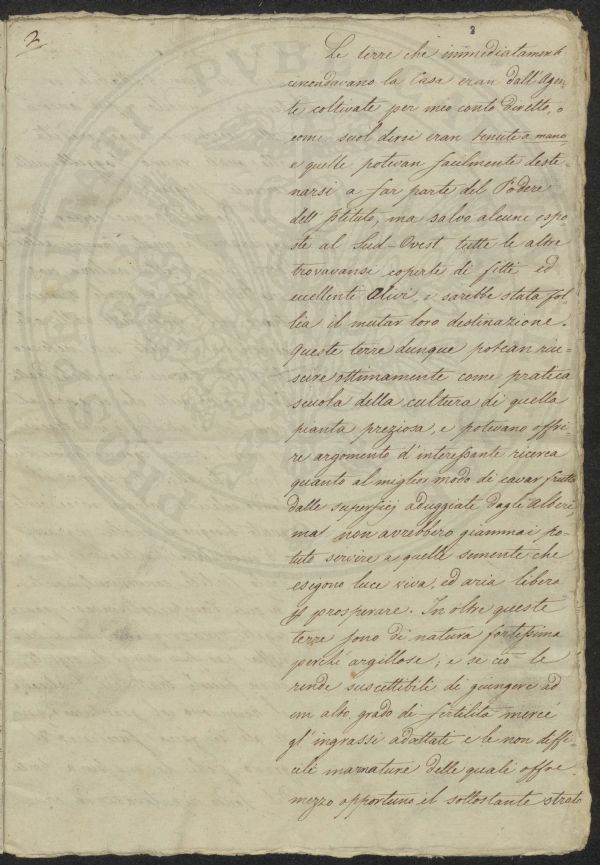 2
3
Le terre che immediatamente
circondavano la Casa eran dall'Agen-
te coltivate per mio conto diretto, o
come suol dirsi eran tenute a mano,
e quelle potevan facilmente desti-
narsi a far parte del Podere
dell'Istituto, ma salvo alcune espo-
ste al Sud-Ovest tutte le altre
trovavansi coperte di fitti ed
eccellenti Olivi, e sarebbe stata fol-
lia il mutar loro destinazione.
Queste terre dunque potean riu-
scire ottimamente come pratica
scuola della cultura di quella
pianta preziosa, e potevano offri-
re argomento d'interessante ricerca
quanto al miglior modo di cavar frutto
dalle superficj aduggiate dagli Alberi
ma non avrebbero giammai po-
tuto servire a quelle semente che
esigono luce viva, ed aria libera
p prosperare. In oltre queste
terre sono di natura fortissima
perchè argillose; e se ciò le
rende suscettibili di giungere ad
un alto grado di fertilità mercè
gl'ingrassi adattati e le non diffi-
cili marnature delle quali offre
mezzo opportuno il sottostante strato